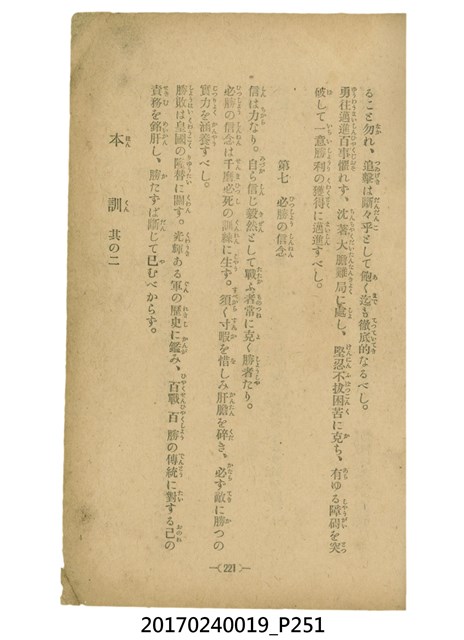 ること勿れ、追撃は斷々乎として飽く迄も徹底的なるべし。
勇往邁進百事懼れず、沈著大膽難局に處し、堅忍不拔困苦に克ち、有ゆる障碍を突
破して一意勝利の獲得に邁進すべし。
第七 必勝の信念
信は力なり。自ら信じ毅然として戰ふ者常に克く勝者たり。
必勝の信念は千磨必死の訓練に生ず。須く寸暇を惜しみ肝膽を碎き、必ず敵に勝つの
實力を涵養すべし。
勝敗は皇國の隆替に關す。光輝ある軍の歴史に鑑み、百戰百勝の傳統に對する己の
責務を銘肝し、勝たずば斷じて已むべからず。
本訓 其の二
(221)
20170240019_P251